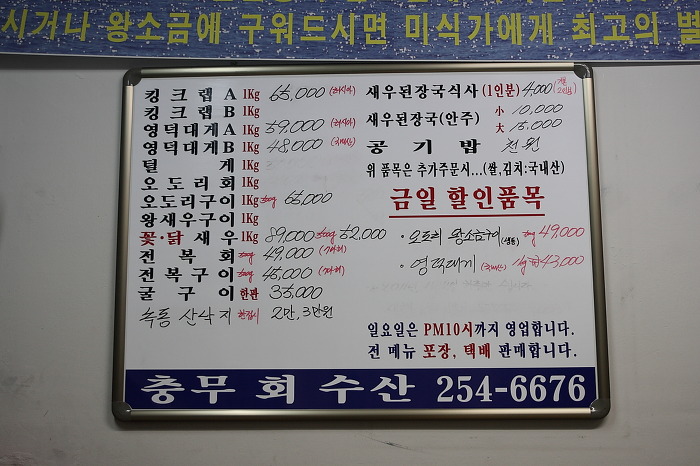 시거나 왕소금에 구워드시면 미식가에게 최고의 별
킹크랩A 1Kg 65,000 (러시아)
킹크랩B 1Kg
영덕대게A 1Kg 59,000 (러시아)
영덕대게B 1Kg 48,000
털게 1Kg
오도리회 1Kg
오도리구이 500g 65,000
왕새우구이 1Kg
꽃·닭새우 1Kg 89,000 500g 52,000
전복회 500g 49,000
전복구이 500g 45,000
굴구이 한판 35,000
녹동 산낙지 한접시 2만, 3만원
새우된장국식사 (1인분) 4,000
새우된장국(안주) 小 10,000
大 15,000
공기밥 천원
위 품목은 추가주문시...(쌀,김치:국내산)
금일 할인품목
· 오도리 왕소금구이 500g 49,000
· 영덕대게 43,000
일요일은 PM10시까지 영업합니다.
전 메뉴 포장, 택배 판매합니다.
충무회수산 254-6676